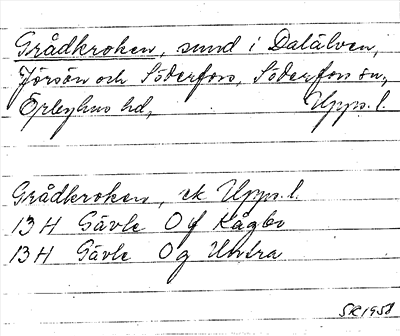 Grådkroken, sund i Dalälven,
Jörsön och Söderfors, Söderfors sn,
Örbyhus hd, Upps. l.
Grådkroken, ek Upps. l.
13 H Gävle 0 f Kågbo
13 H Gävle 0 g Untra
SK 1958